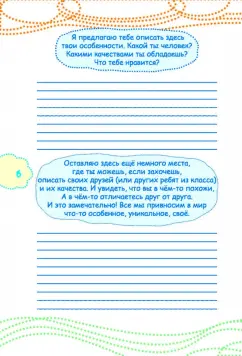 Я предлагаю тебе описать здесь
твои особенности. Какой ты человек?
Какими качествами ты обладаешь?
Что тебе нравится?
6
Оставляю здесь ещё немного места,
где ты можешь, если захочешь,
описать своих друзей (или других ребят из класса)
и их качества. И увидеть, что вы в чём-то похожи,
А в чём-то отличаетесь друг от друга.
И это замечательно! Все мы привносим в мир
что-то особенное, уникальное, своё.